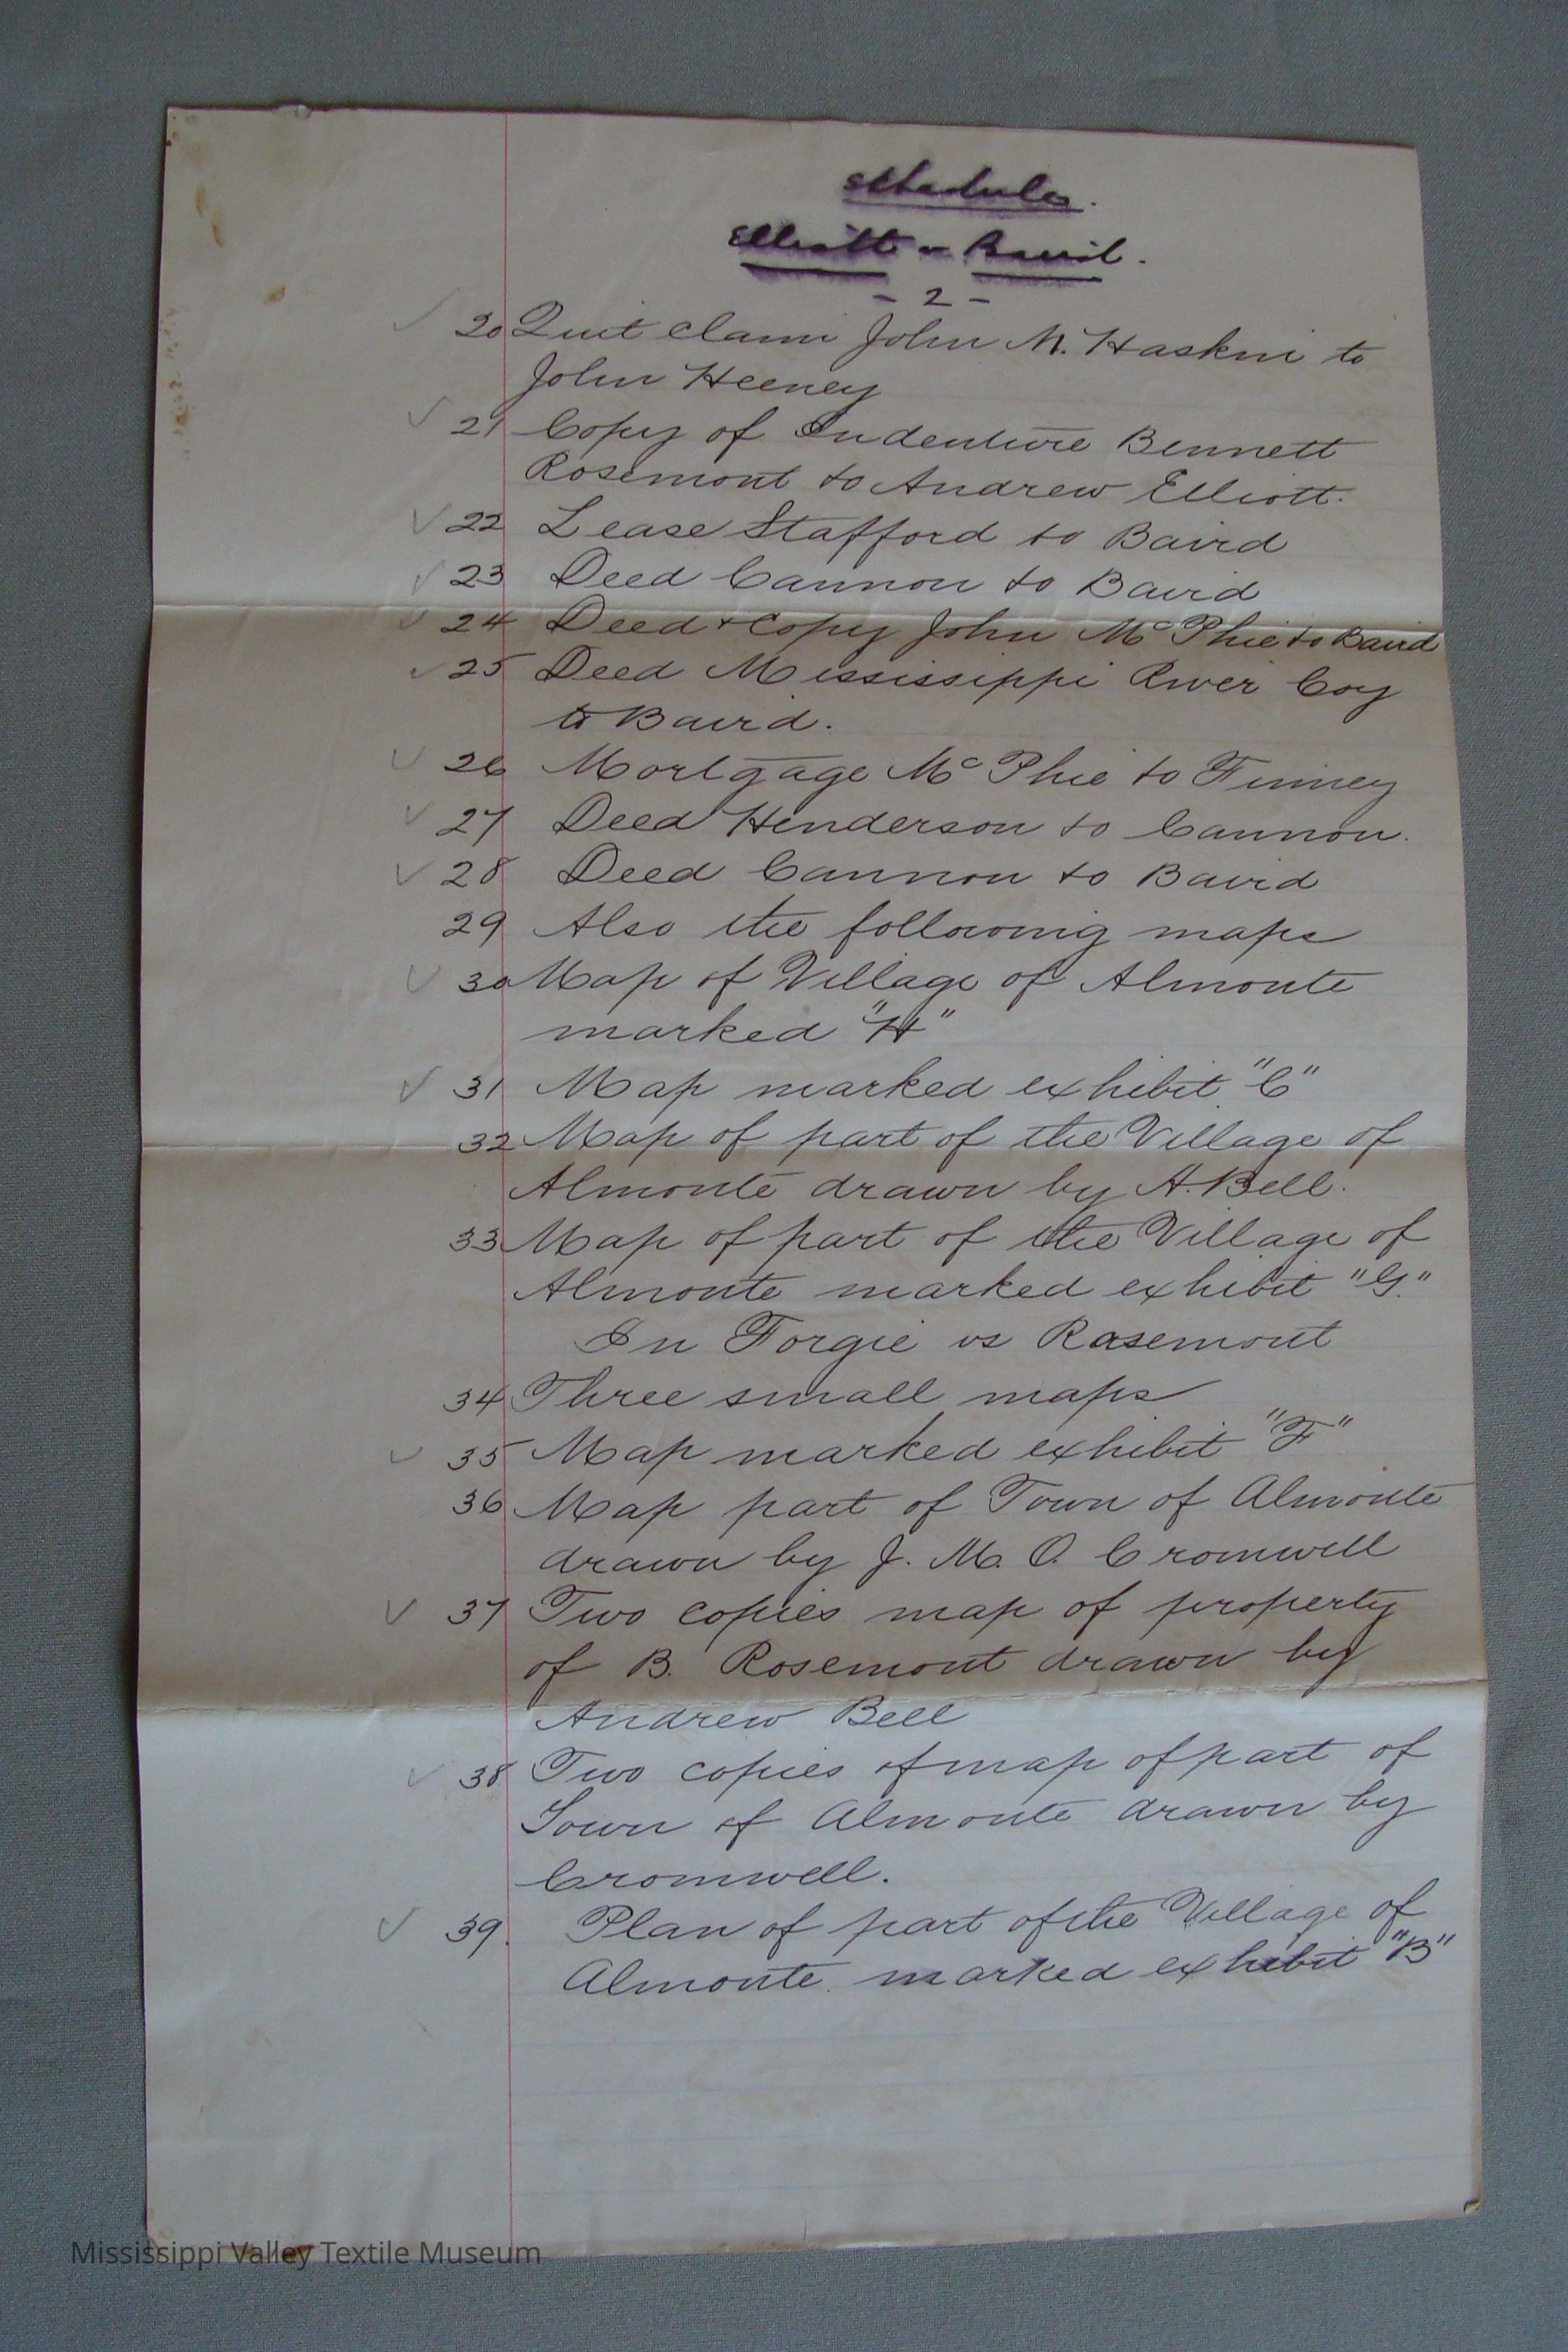 Schedules.
Elliott v Baird.
- 2 -
✓ 20 Quit Claim John M. Haskin to
John Heeney
✓ 21 Copy of Indenture Bennett
Rosemont to Andrew Elliott.
✓ 22 Lease Stafford to Baird
✓ 23 Deed Cannon to Baird
✓ 24 Deed & Copy John McPhie to Baird
✓ 25 Deed Mississippi River Coy
to Baird.
✓ 26 Mortgage McPhie to Finney
✓ 27 Deed Henderson to Cannon.
✓ 28 Deed Cannon to Baird
29 Also the following maps
✓ 30 Map of Village of Almonte
marked "H"
✓ 31 Map marked exhibit "C"
32 Map of part of the Village of
Almonte drawn by A. Bell.
33 Map of part of the Village of
Almonte marked exhibit "G."
In Forgie vs Rosemont
34 Three small maps
✓ 35 Map marked exhibit "F"
36 Map part of Town of Almonte
drawn by J. M. O. Cromwell
✓ 37 Two copies map of property
of B. Rosemont drawn by
Andrew Bell
✓ 38 Two copies of map of part of
Town of Almonte drawn by
Cromwell.
✓ 39. Plan of part of the Village of
Almonte. marked exhibit "B"
Mississippi Valley Textile Museum